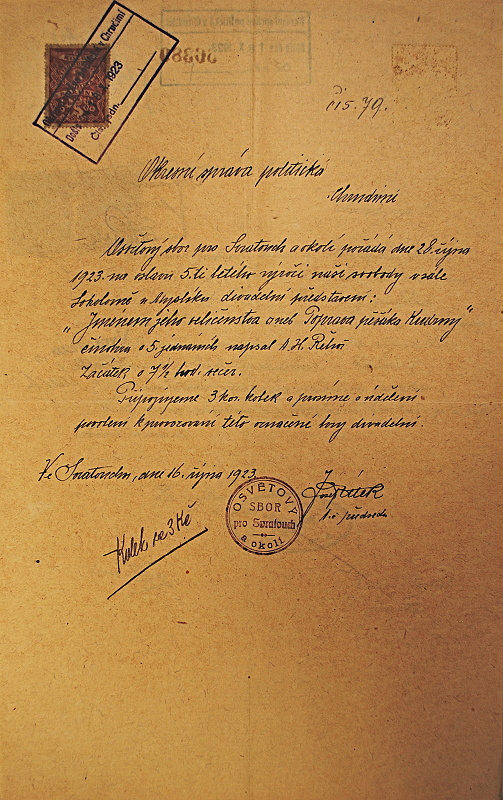 Chrudimi
1923
30380
č 15.79.
Okresní správa politická
Chrudimi
Osvětový sbor pro Svratouch a okolí pořádá dne 28. října
1923 na oslavu 5. ti letého výročí naší svobody v sále
Sokolovně u Myslíka divadelní představení:
„Jménem jeho veličenstva aneb Poprava pěšáka Kudrny"
činohra o 5 jednáních napsal A. H.
Začátek o 7½ hod. večer.
Připojujeme 3 kor. kolek a prosíme o udělení
povolení k provozování této označené hry divadelní.
Ve Svratouchu, dne 16. října 1923.
OSVĚTOVÝ
SBOR
pro Svratouch
a okolí
Josef
t. č. předseda
Kolek za 3 Kč